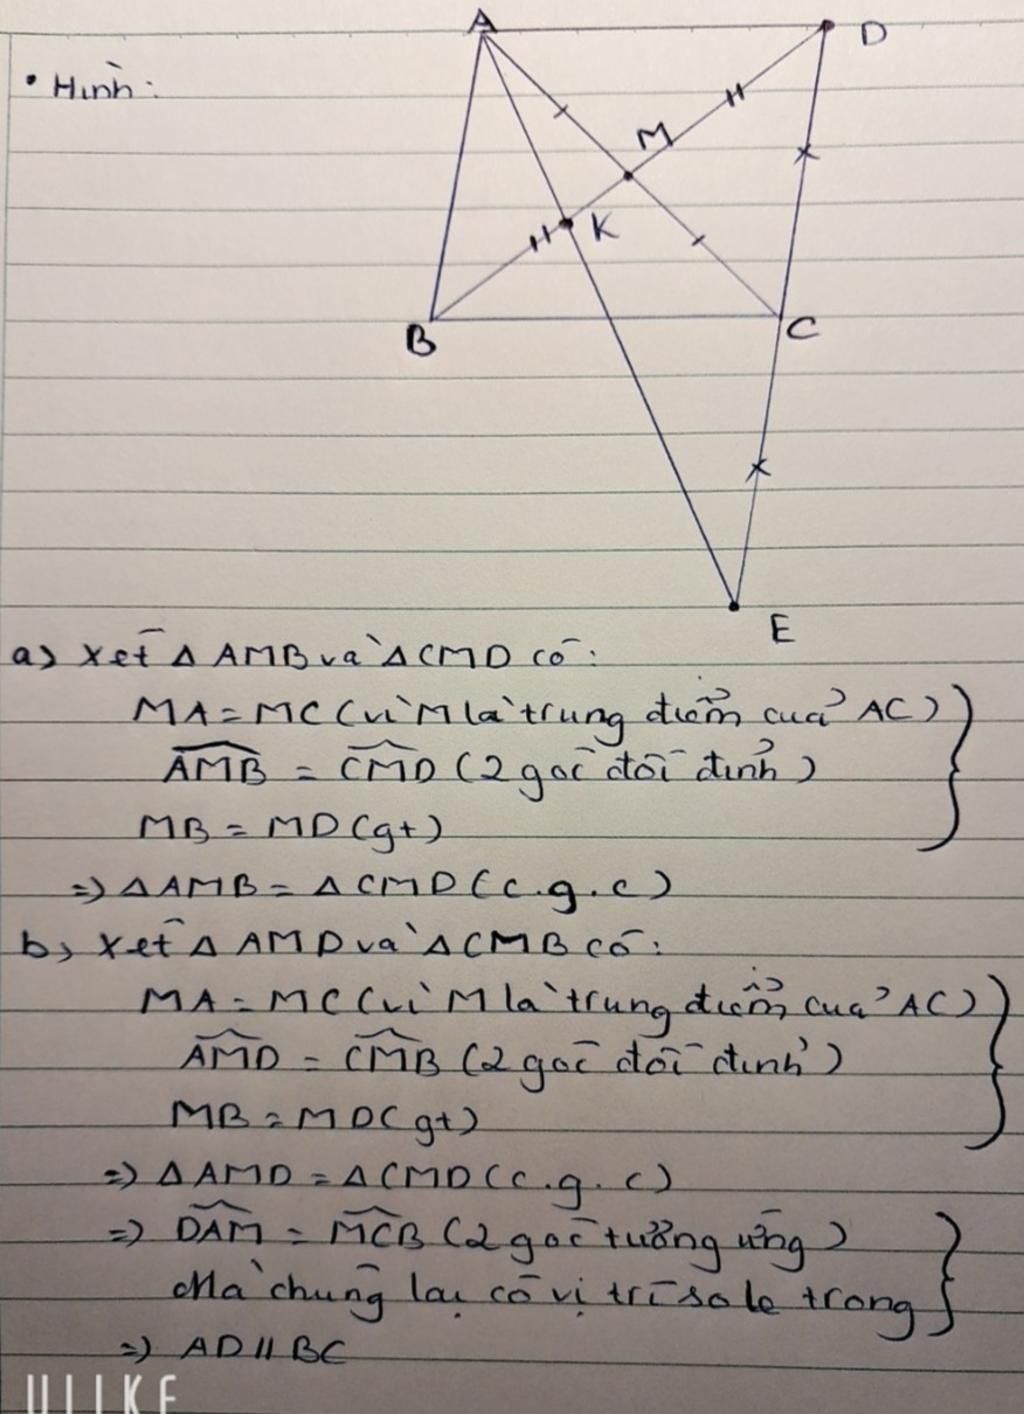 • Hình:
A
D
M
K
B
C
E
a) Xét △ AMB và △ CMD có:
MA = MC (vì M là trung điểm của AC)
AMB = CMD (2 góc đối đỉnh)
MB = MD (gt)
=) △ AMB = △ CMD (c.g.c)
b, Xét △ AMD và △ CMB có:
MA = MC (vì M là trung điểm của AC)
AMD = CMB (2 góc đối đỉnh)
MB = MD (gt)
=) △ AMD = △ CMD (c.g.c)
=) DAM = MCB (2 góc tưởng ứng)
Mà chúng lại có vị trí so le trong
=) AD // BC
ULIKE